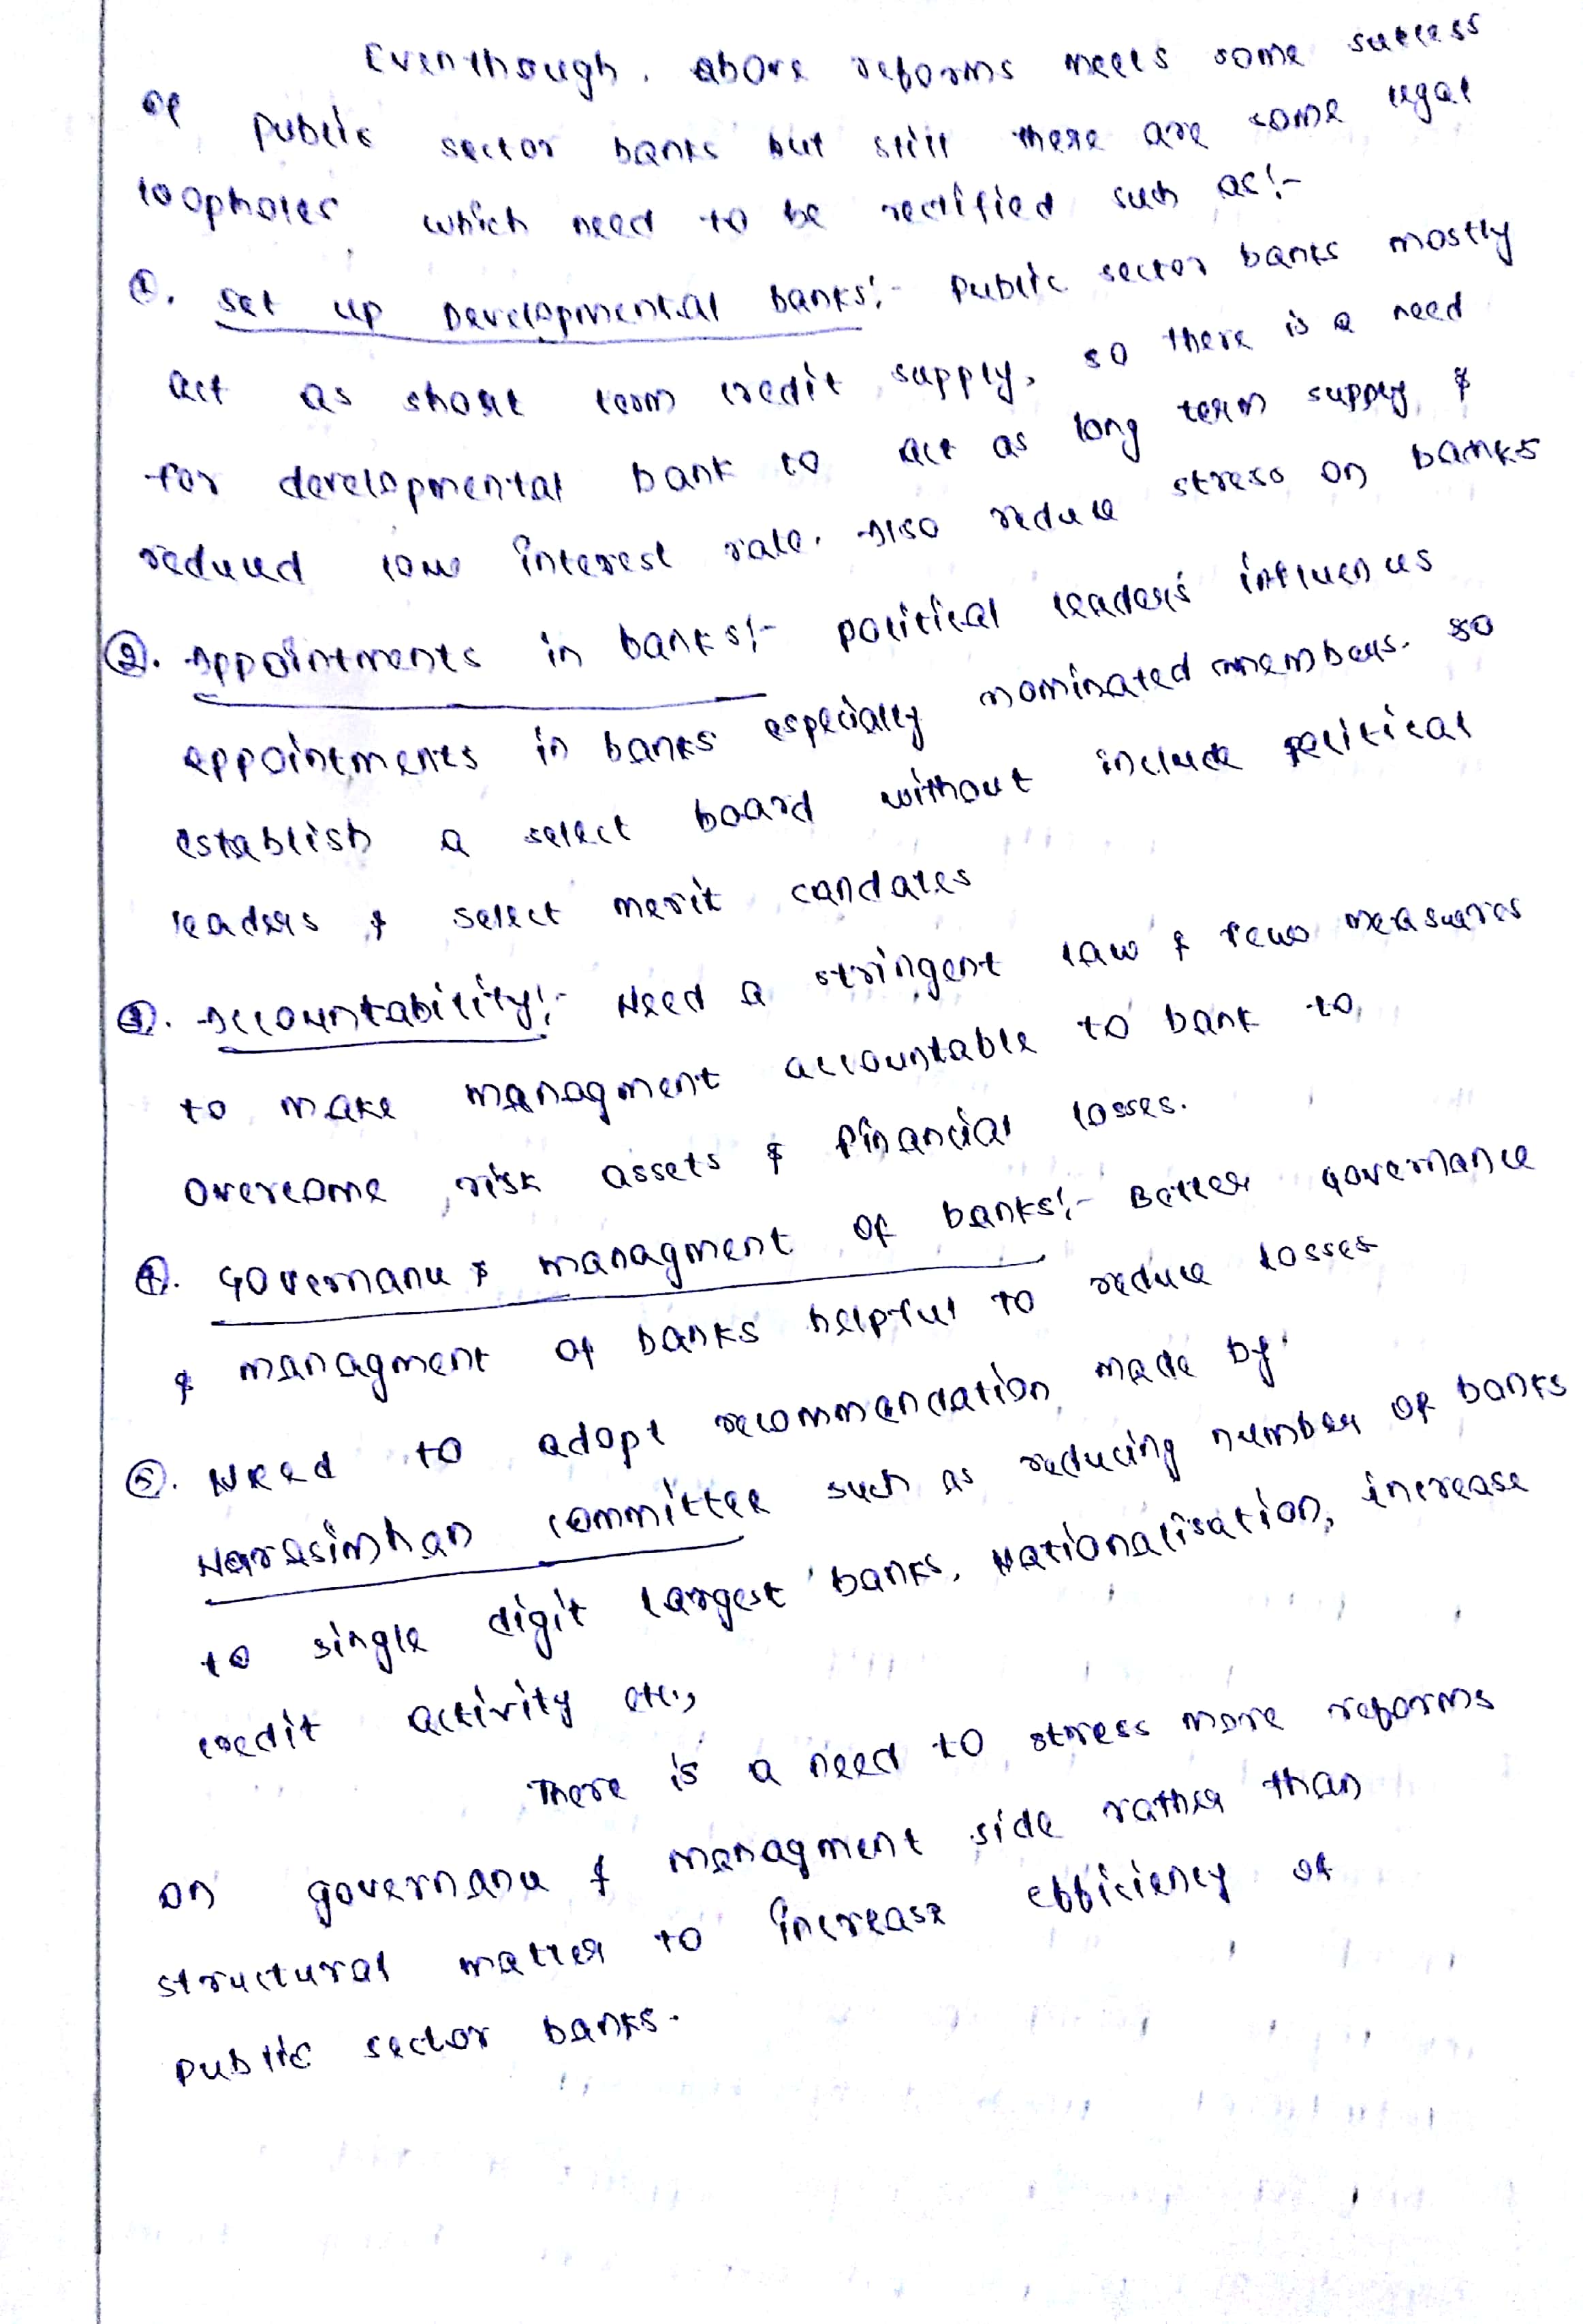 Eventhough, above reforms meets some success
of public sector banks but still there are some legal
loopholes which need to be rectified such as:-
①. Set up Developmental banks:- public sector banks mostly
act as short term credit supply, so there is a need
for developmental bank to act as long term supply &
reduced low interest rate. Also reduce stress on banks
②. Appointments in banks:- political leaders influences
appointments in banks especially nominated members. so
establish a select board without include political
leaders & select merit candates
③. Accountability:- Need a stringent law & few measures
to make managment accountable to bank to
overcome risk assets & financial losses.
④. Governance & managment of banks:- Better governance
& managment of banks helpful to reduce losses
⑤. Need to adopt recommendation made by
Narasimhan committee such as reducing number of banks
to single digit largest banks, Nationalisation, increase
credit activity etc.,
There is a need to stress more reforms
on governance & managment side rather than
structural matter to increase efficiency of
public sector banks.